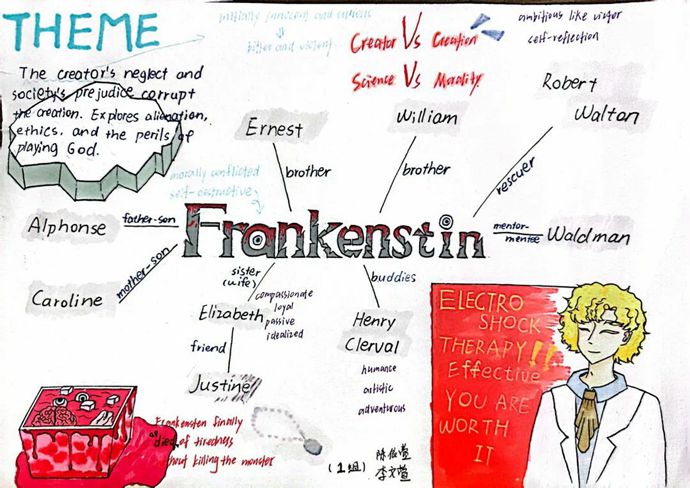 THEME
The creator's neglect and
society's prejudice corrupt
the creation. Explores alienation,
ethics, and the perils of
playing God.
initially innocent and curious
bitter and violent
Creator Vs Creation
Science Vs Morality
ambitious like victor
self-reflection
Robert
Waltan
rescuer
Ernest
brother
William
brother
morally conflicted
self-destructive
Alphonse
father-son
Frankenstin
mentor-
mentee
Waldman
Caroline
mother-son
sister
(wife)
Elizabeth
compassionate
loyal
passive
idealized
friend
Justine
buddies
Henry
Clerval
humance
artistic
adventurous
ELECTRO
SHOCK
THERAPY!!
Effective
YOU ARE
WORTH
IT
Frankensten finally
died of tiredness
without killing the monster
(1组)